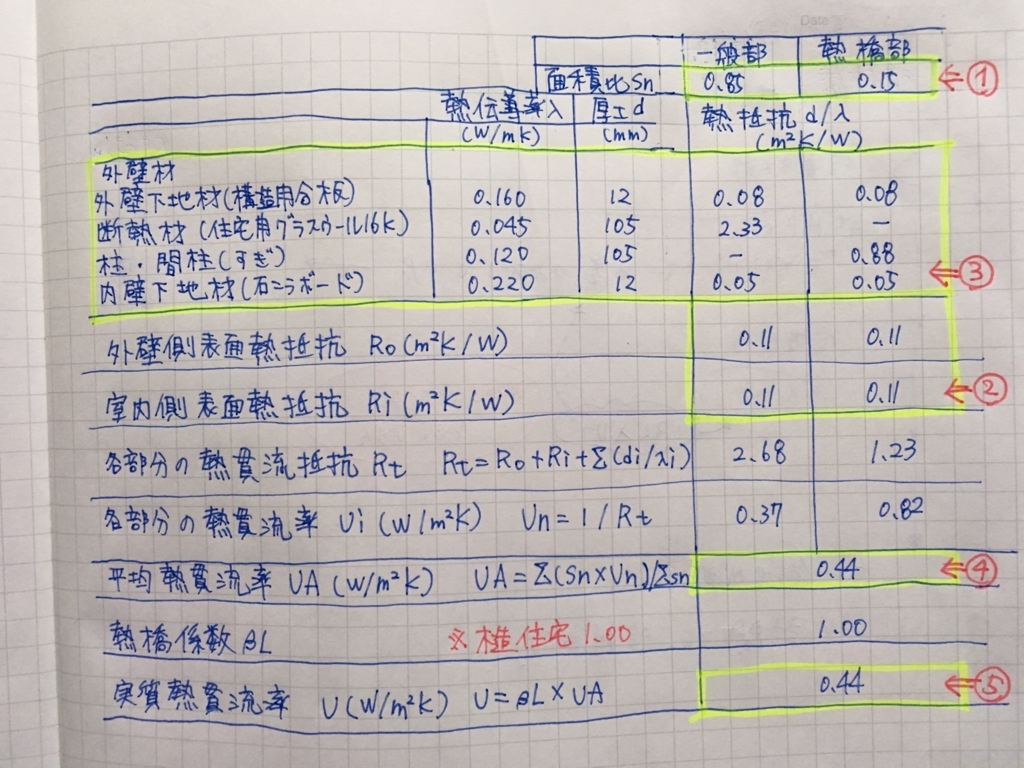 Date
一般部 熱橋部
面積比Sn 0.85 0.15 ←①
熱伝導率λ 厚さd 熱抵抗 d/λ
(W/mK) (mm) (m²K/W)
外壁材
外壁下地材(構造用合板) 0.160 12 0.08 0.08
断熱材(住宅用グラスウール16K) 0.045 105 2.33 -
柱・間柱(すぎ) 0.120 105 - 0.88
内壁下地材(石こうボード) 0.220 12 0.05 0.05 ←③
外壁側表面熱抵抗 Ro(m²K/W) 0.11 0.11
室内側表面熱抵抗 Ri(m²K/W) 0.11 0.11 ←②
各部分の熱貫流抵抗 Rt Rt=Ro+Ri+Σ(di/λi) 2.68 1.23
各部分の熱貫流率 Ui(W/m²K) Un=1/Rt 0.37 0.82
平均熱貫流率 UA(W/m²K) UA=Σ(Sn×Un)/Σsn 0.44 ←④
熱橋係数βL ※木造住宅1.00 1.00
実質熱貫流率 U(W/m²K) U=βL×UA 0.44 ←⑤